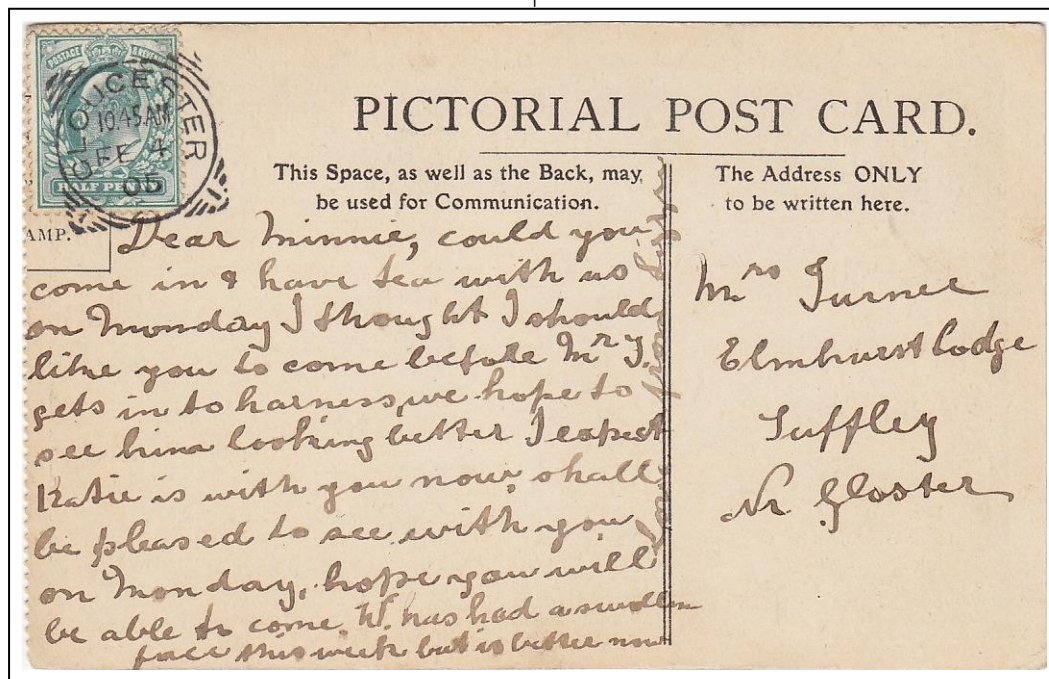 POSTAGE & REVENUE
HALF PENNY
GLOUCESTER
10.45AM
FE 4
05
AMP.
PICTORIAL POST CARD.
This Space, as well as the Back, may
be used for Communication.
The Address ONLY
to be written here.
Dear Minnie, could you
come in & have tea with us
on Monday I thought I should
like you to come before Mr T.
gets in to harness, we hope to
see him looking better I expect
Katie is with you now, shall
be pleased to see with you
on Monday, hope you will
be able to come W. has had a swollen
face this week but is better now
from
Mrs Turner
Elmhurst Lodge
Tuffley
Nr Gloster